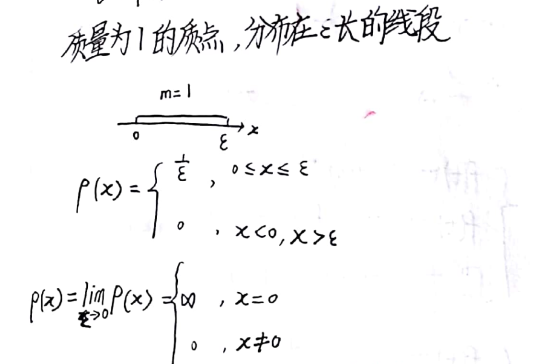 质量为1的质点,分布在ε长的线段
m=1
0 ε x
ρ(x) = { 1/ε , 0≤x≤ε
0 , x<0, x>ε
ρ(x) = lim ε→0 ρ(x) = { ∞ , x=0
0 , x≠0